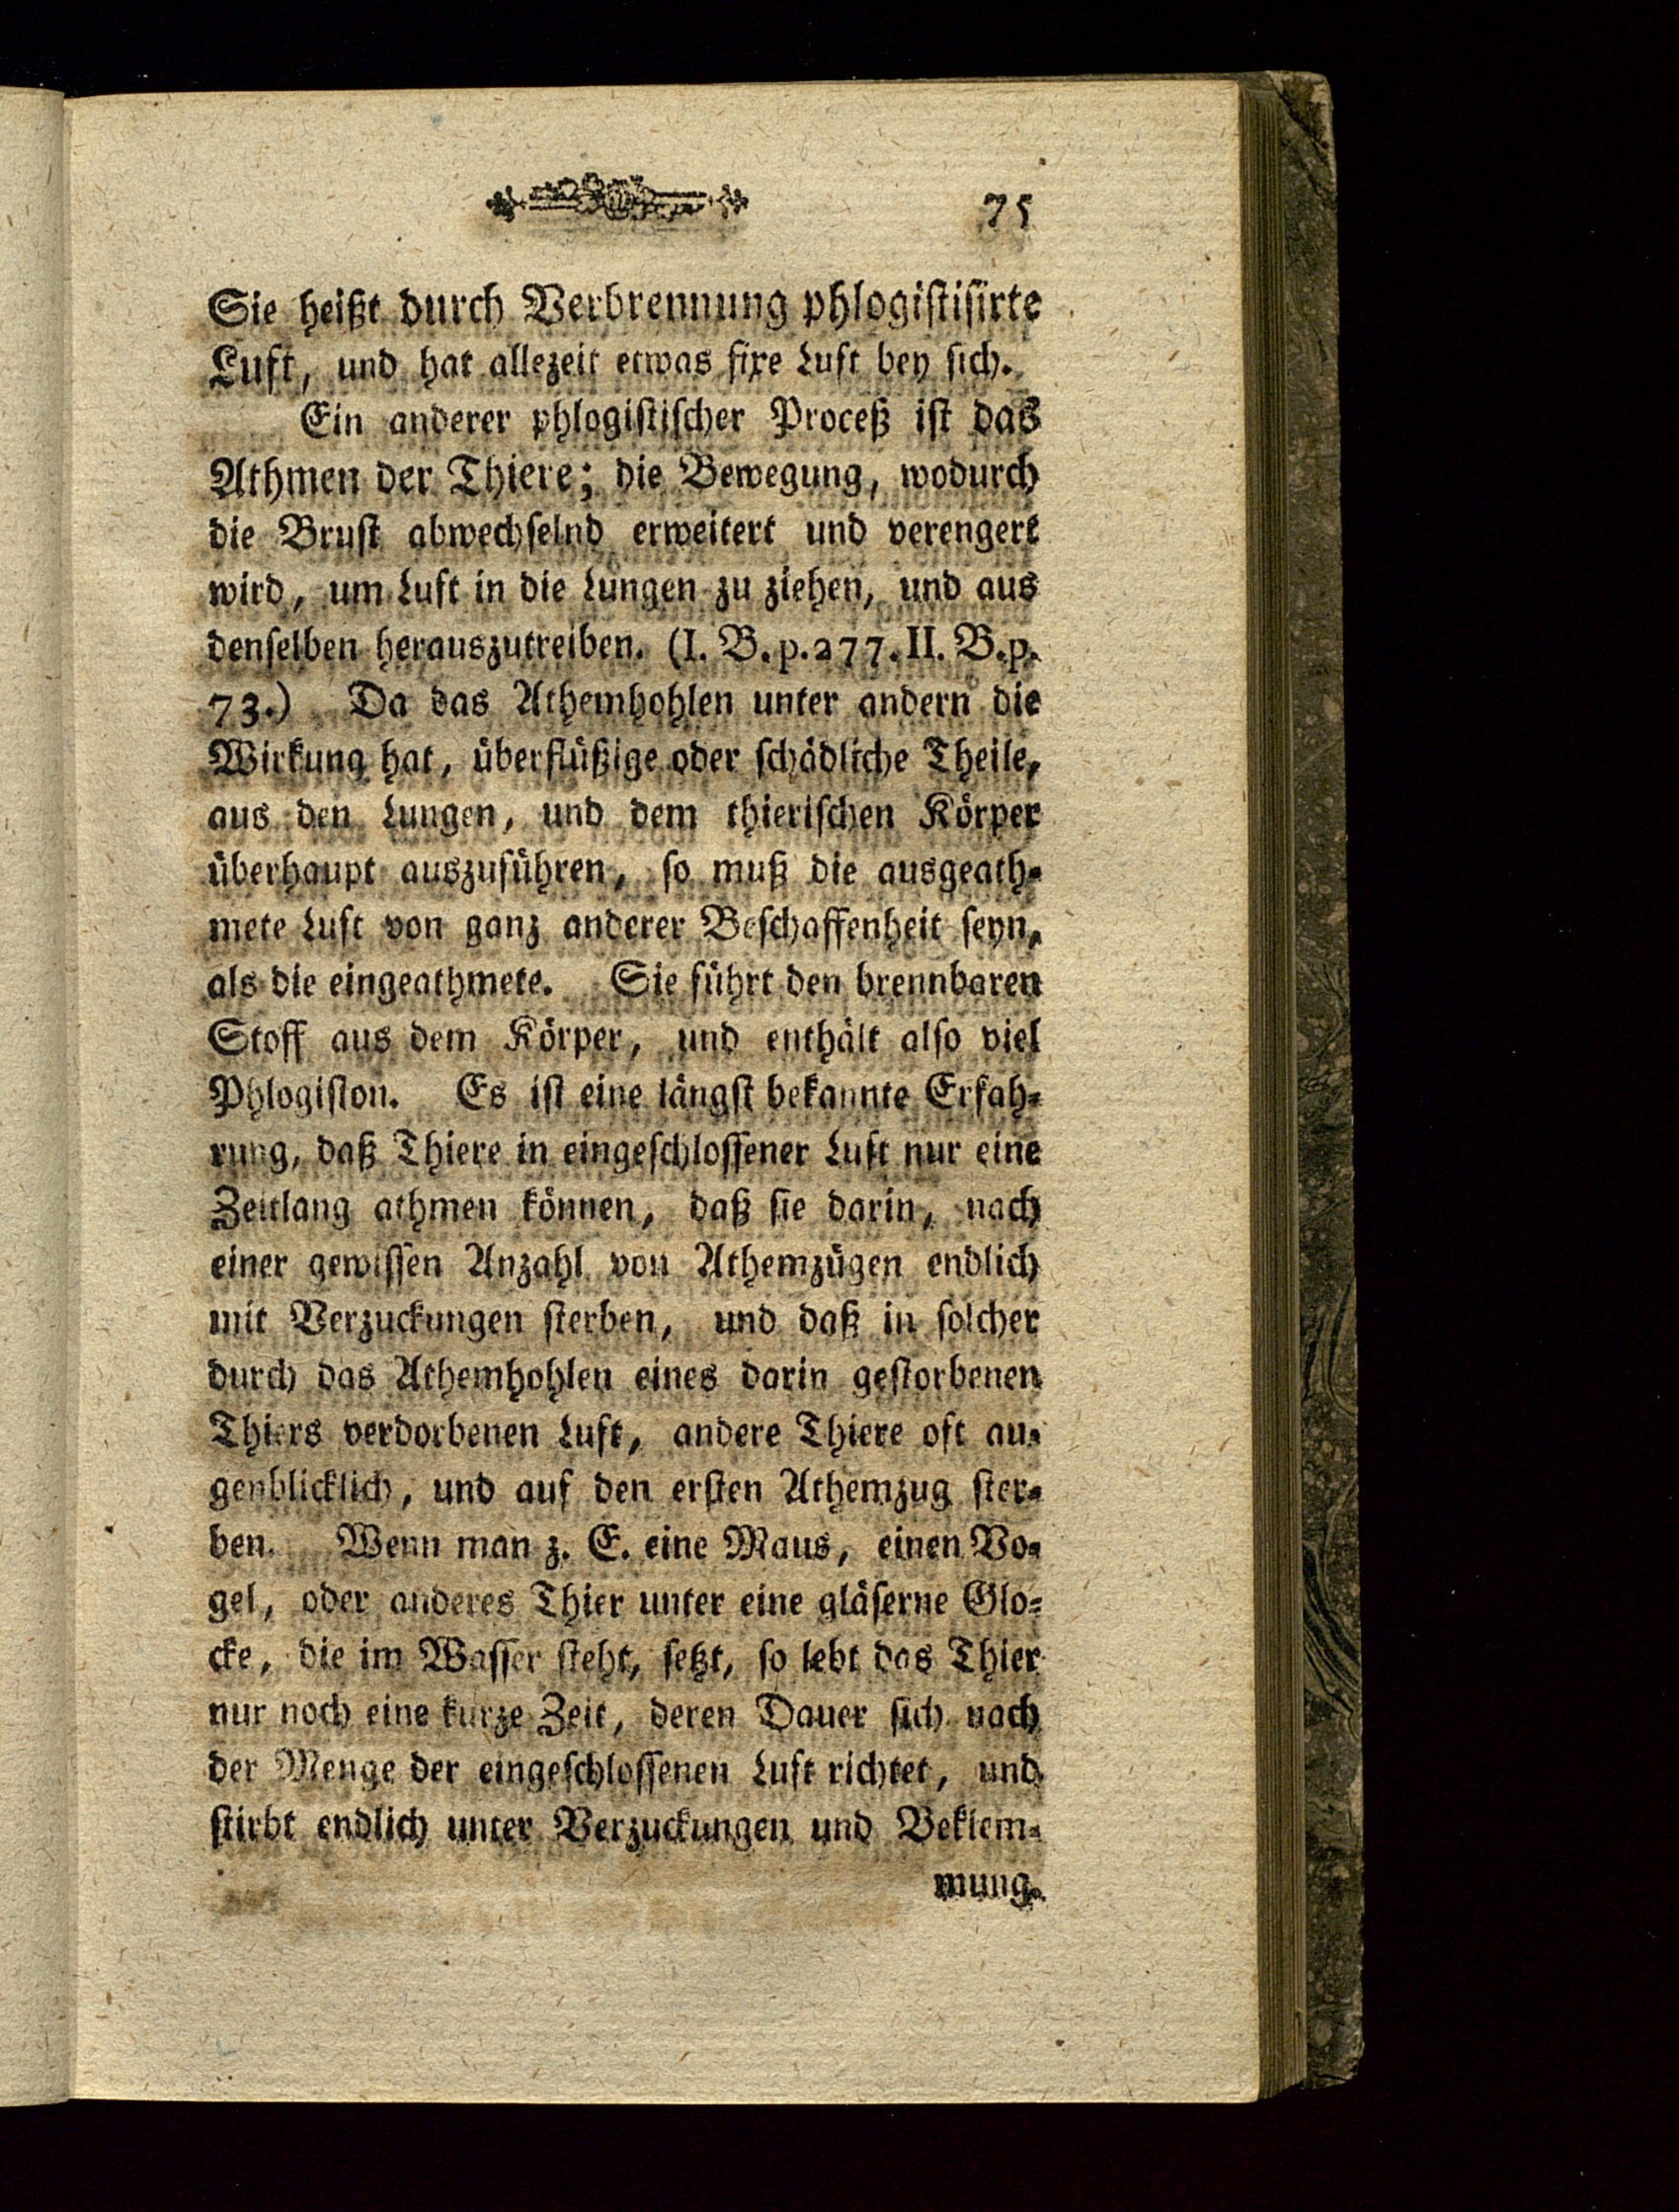 75
Sie heißt durch Verbrennung phlogistisirte
Luft, und hat allezeit etwas fixe Luft bey sich.
Ein anderer phlogistischer Proceß ist das
Athmen der Thiere; die Bewegung, wodurch
die Brust abwechselnd erweitert und verengert
wird, um Luft in die Lungen zu ziehen, und aus
denselben herauszutreiben. (I. B. p. 277. II. B. p.
73.) Da das Athemhohlen unter andern die
Wirkung hat, überflüßige oder schädliche Theile,
aus den Lungen, und dem thierischen Körper
überhaupt auszuführen, so muß die ausgeath-
mete Luft von ganz anderer Beschaffenheit seyn,
als die eingeathmete. Sie führt den brennbaren
Stoff aus dem Körper, und enthält also viel
Phlogiston. Es ist eine längst bekannte Erfah-
rung, daß Thiere in eingeschlossener Luft nur eine
Zeitlang athmen können, daß sie darin, nach
einer gewissen Anzahl von Athemzügen endlich
mit Verzuckungen sterben, und daß in solcher
durch das Athemhohlen eines darin gestorbenen
Thiers verdorbenen Luft, andere Thiere oft au-
genblicklich, und auf den ersten Athemzug ster-
ben. Wenn man z. E. eine Maus, einen Vo-
gel, oder anderes Thier unter eine gläserne Glo-
cke, die im Wasser steht, setzt, so lebt das Thier
nur noch eine kurze Zeit, deren Dauer sich nach
der Menge der eingeschlossenen Luft richtet, und
stirbt endlich unter Verzuckungen und Beklem-
mung.